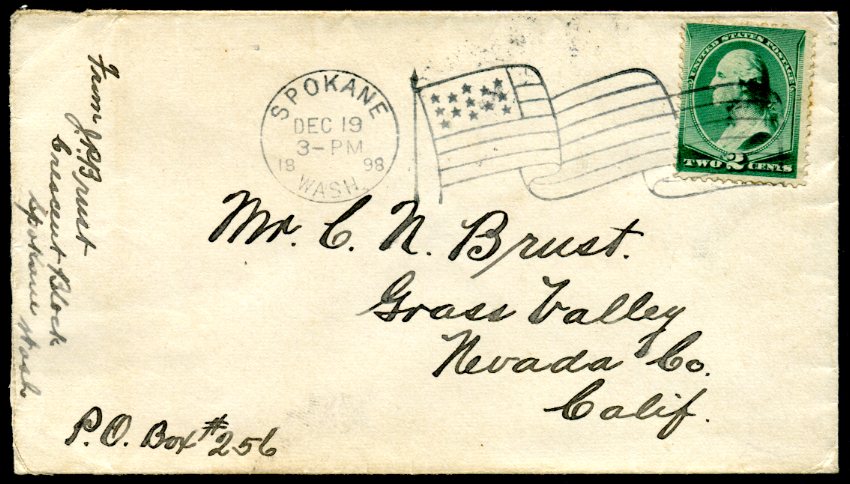 From J.P. Brust
Crescent Block
Spokane Wash
SPOKANE
DEC 19
3-PM
18 98
WASH.
UNITED STATES POSTAGE
TWO 2 CENTS
Mr. C. N. Brust.
Grass Valley
Nevada Co.
Calif.
P.O. Box #256